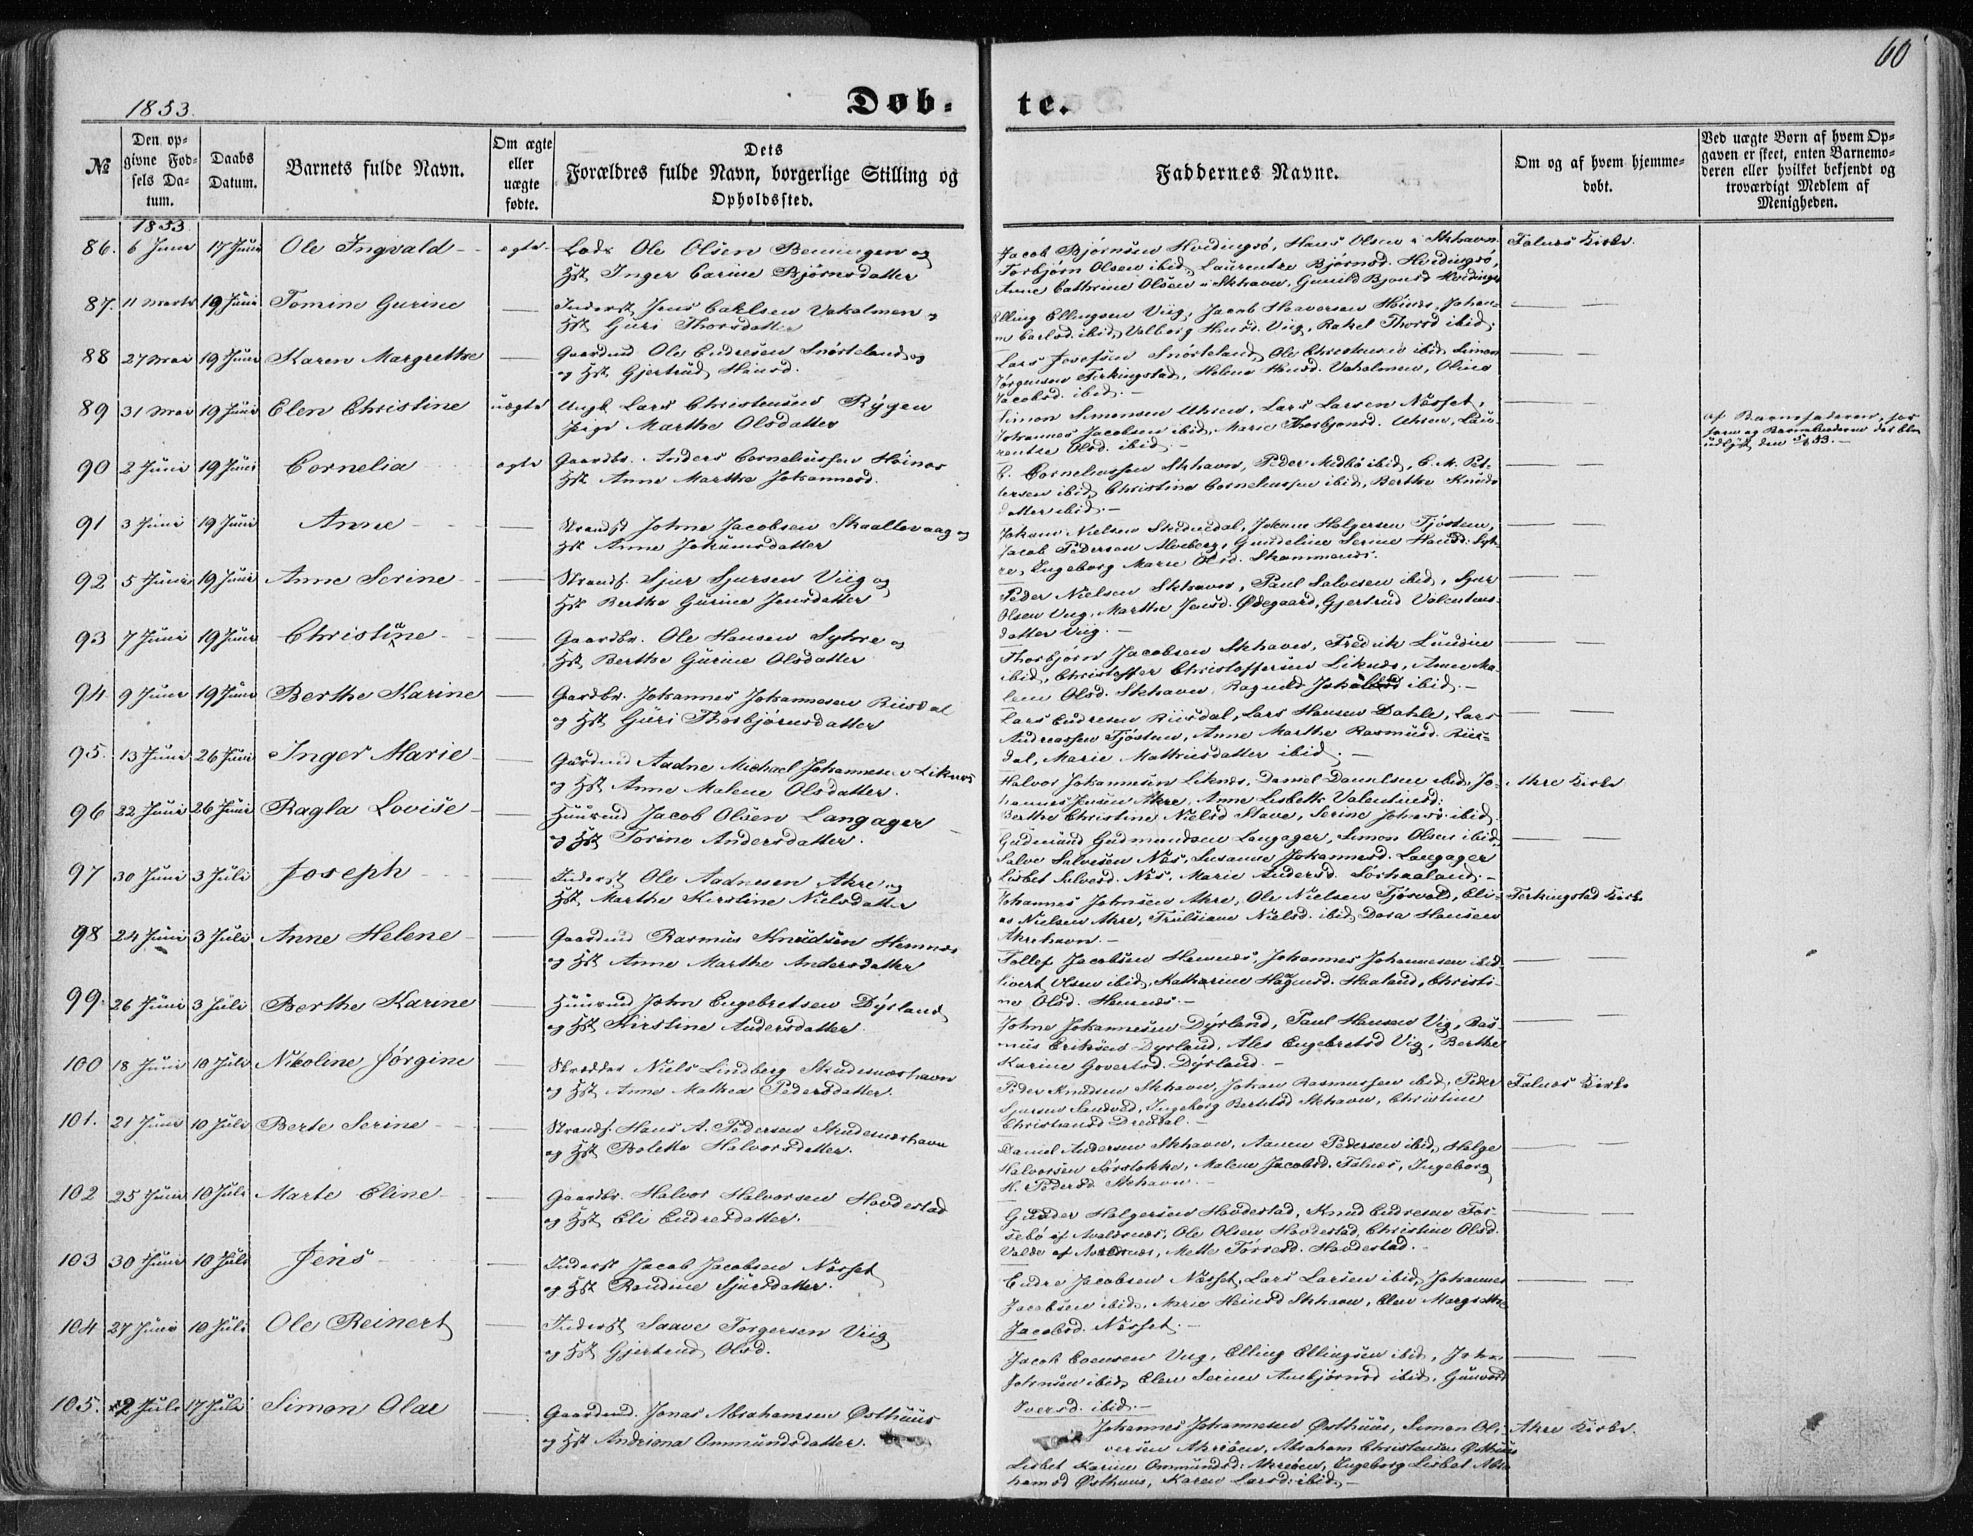 60
1853.
Døb-
te.
№
Den op-
givne Fød-
sels Da-
tum.
Daabs
Datum.
Barnets fulde Navn.
Om ægte
eller
uægte
fødte.
Dets
Forældres fulde Navn, borgerlige Stilling og
Opholdssted.
Faddernes Navne.
Om og af hvem hjemme-
døbt.
Ved uægte Børn af hvem Op-
gaven er skeet, enten Barnemo-
deren eller hvilket bekjendt og
troværdigt Medlem af
Menigheden.
1853
86. 6 Juni 17 Juni Ole Ingvald ægte Lods Ole Olsen Benningen og
Hst Inger Carine Bjørnsdatter
Jacob Bjørnsen Hvidingsø, Hans Olsen i Skhavn Falnes Kirke.
Torbjørn Olsen ibid, Laurentze Bjørnsd. Hvidingsø,
Anne Cathrine Olsen i Skhavn, Gunild Bjørnsd Hvidingsø
87. 11 Marts 19 Juni Tomine Gurine — Inderst Jens Carlsen Vakalmen og
Hst Guri Thorsdatter
Elling Ellingsen Viig, Jacob Haaversen Hönes, Johan-
Carlsd. ibid, Valborg Hansd. Viig, Rakel Thorsd ibid.
88 27 Mai 19 Juni Karen Margrethe — Gaardmd Ole Endresen Snörteland og
og Hst Gjertrud Hansd.
Lars Josefsen Snörteland, Ole Christensen ibid, Simon
Jörgensen Ferkingstad, Helene Hansd. Vakalmen, Oline
Jacobsd. ibid.
89 31 Mai 19 Juni Elen Christine uægte Ungk. Lars Christensen Rÿgen
Pige Marthe Olsdatter
Simon Simonsen Uhren, Lars Larsen Nösset,
Johannes Jacobsen ibid, Marie Thorbjørnsd. Uhren, Lau-
rentze Olsd. ibid.
af Barnefaderen,
90 2 Juni 19 Juni Cornelia ægte Gaardbr. Anders Corneliussen Höines
Hst Anne Marthe Johannesd.
C. Corneliussen Skhavn, Peder Medbö ibid, C. M. Pet-
tersen ibid, Christine Corneliussen ibid, Berthe Knuds
datter ibid.
91 3 Juni 19 Juni Anne — Strands. Johne Jacobsen Skaallevaag og
Hst Anne Johannesdatter
Johan Nielsen Skednedal, Johanne Holgersen Tjösten,
Jacob Pedersen Alveberg, Gundeline Serine Hansd. Syt-
re, Ingeborg Marie Olsd. Stemmenes.
92 5 Juni 19 Juni Anne Serine — Strands. Sjur Sjursen Viig og
Hst Berthe Gurine Jensdatter
Peder Nielsen Skhavn, Paul Salvesen ibid, Sjur
Olsen Viig, Marthe Jensd. Ødegaard, Gjertrud Valentins-
datter Viig.
93 7 Juni 19 Juni Christine — Gaardbr. Ole Hansen Sytre og
Hst Berthe Gurine Olsdatter
Thorbjørn Jacobsen Skhavn, Fredrik Lundin
ibid, Christoffer Christoffersen Liknes, Anne Ma-
lene Olsd. Skhavn, Ragnild ibid.
94. 9 Juni 19 Juni Berthe Karine — Gardbr. Johannes Johannesen Riisdal
og Hst Guri Thorbjørnsdatter
Lars Endresen Riisdal, Lars Hansen Dahle, Lars
Andreassen Tjösten, Anne Marthe Rasmusd. Riis-
dal, Marie Mathiesdatter ibid.
95. 13 Juni 26 Juni Inger Marie — Gardmd Aadne Michael Johannesen Liknes
og Hst Anne Malene Olsdatter.
Halvor Johannesen Liknes, Daniel Danielsen ibid, Jo- Akre Kirke
hannes Jensen Akre, Anne Lisbeth Valentinsd.
Berthe Christine Nielsd Stave, Serine Johnsd. ibid.
96 22 Juni 26 Juni Ragla Lovise — Huusmd Jacob Olsen Langager
og Hst Torine Andersdatter.
Gudmund Gudmundsen Langager, Simon Olsen ibid,
Salve Salvesen Nes, Susanne Johannesd. Langager
Lisbet Salvesd. Nes, Marie Andersd. Sörhaaland.
97 30 Juni 3 Juli Joseph — Inderst Ole Aadnesen Akre og
Hst Marthe Kirstine Nielsdatter
Johannes Johnsen Akre, Ole Nielsen Tjösvold, Eli- Ferkingstad Kirke
as Nielsen Akre, Nielsd. ibid, Dora Hansen
Akrehavn.
98 24 Juni 3 Juli Anne Helene — Gaardmd Rasmus Knudsen Hemnes
og Hst Anne Marthe Andersdatter
Tollef Jacobsen Hemnes, Johannes Johannesen ibid.
Sivert Olsen ibid, Katharine Haagensd. Haaland, Christi-
ne Olsd. Hemnes.
99. 26 Juni 3 Juli Berthe Karine — Huusmd John Engebretsen Dÿrland
og Hst Kirstine Andersdatter
Johne Johannesen Dÿrland, Paul Hansen Vig, Ras-
mus Eriksen Dyrland, Ales Engebretsd Vig, Berthe
Karine Govertsd. Dÿrland.
100 18 Juni 10 Juli Nicoline Jörgine — Skrædder Niels Lindberg Skudesneshavn
og Hst Anne Mathea Pedersdatter.
Peder Knudsen Skhavn, Johan Rasmussen ibid, Peder Falnes Kirke
Sjursen Sandved, Ingeborg Bertelsd Skhavn, Christine
Christiansd Dredal.
101. 21 Juni 10 Juli Berte Serine — Strands. Hans A. Pedersen Skudesneshavn
og Hst Bolette Halvorsdatter.
Daniel Andersen Skhavn, Aanen Pedersen ibid, Helge
Halvorsen Sörstokke, Malene Jacobsd. Falnes, Ingeborg
H. Pedersd Skhavn.
102 25 Juni 10 Juli Marte Eline — Gaardbr. Halvor Halvorsen Hovdestad
og Hst Eli Endresdatter.
Gunder Holgersen Hovdestad, Knud Endresen For-
sebö af Avaldsnes, Ole Olsen Hovdestad, Christine Olsd.
Valde af Avaldsnes, Mette Torresd. Hovdestad.
103 30 Juni 10 Juli Jens — Inderst Jacob Jacobsen Nösset
og Hst Randine Sjursdatter.
Endre Jacobsen Nösset, Lars Larsen ibid, Johannes
Jacobsen ibid, Marie Heinsd Skhavn, Elen Margrethe
Jacobsd. Nösset.
104 27 Juni 10 Juli Ole Reinert — Inderst Saave Torgersen Viig
og Hst Gjertrud Olsd.
Jacob Evensen Viig, Elling Ellingsen ibid, John
Johnsen ibid, Elen Serine Ambjørnsd ibid, Gunvor
Iversd. ibid.
105. 2 Juli 17 Juli Simon Olai — Gaardmd. Jonas Abrahamsen Østhuus
og Hst Andriana Ommundsdatter.
Johannes Johannesen Østhuus, Simon Ol- Akre Kirke.
versen Akreöen, Abraham Christensen Østhuus
Lisbet Karine Ommundsd. Akreöen, Ingeborg Lisbet Abra
hamsd Østhuus, Karen Larsd. ibid.